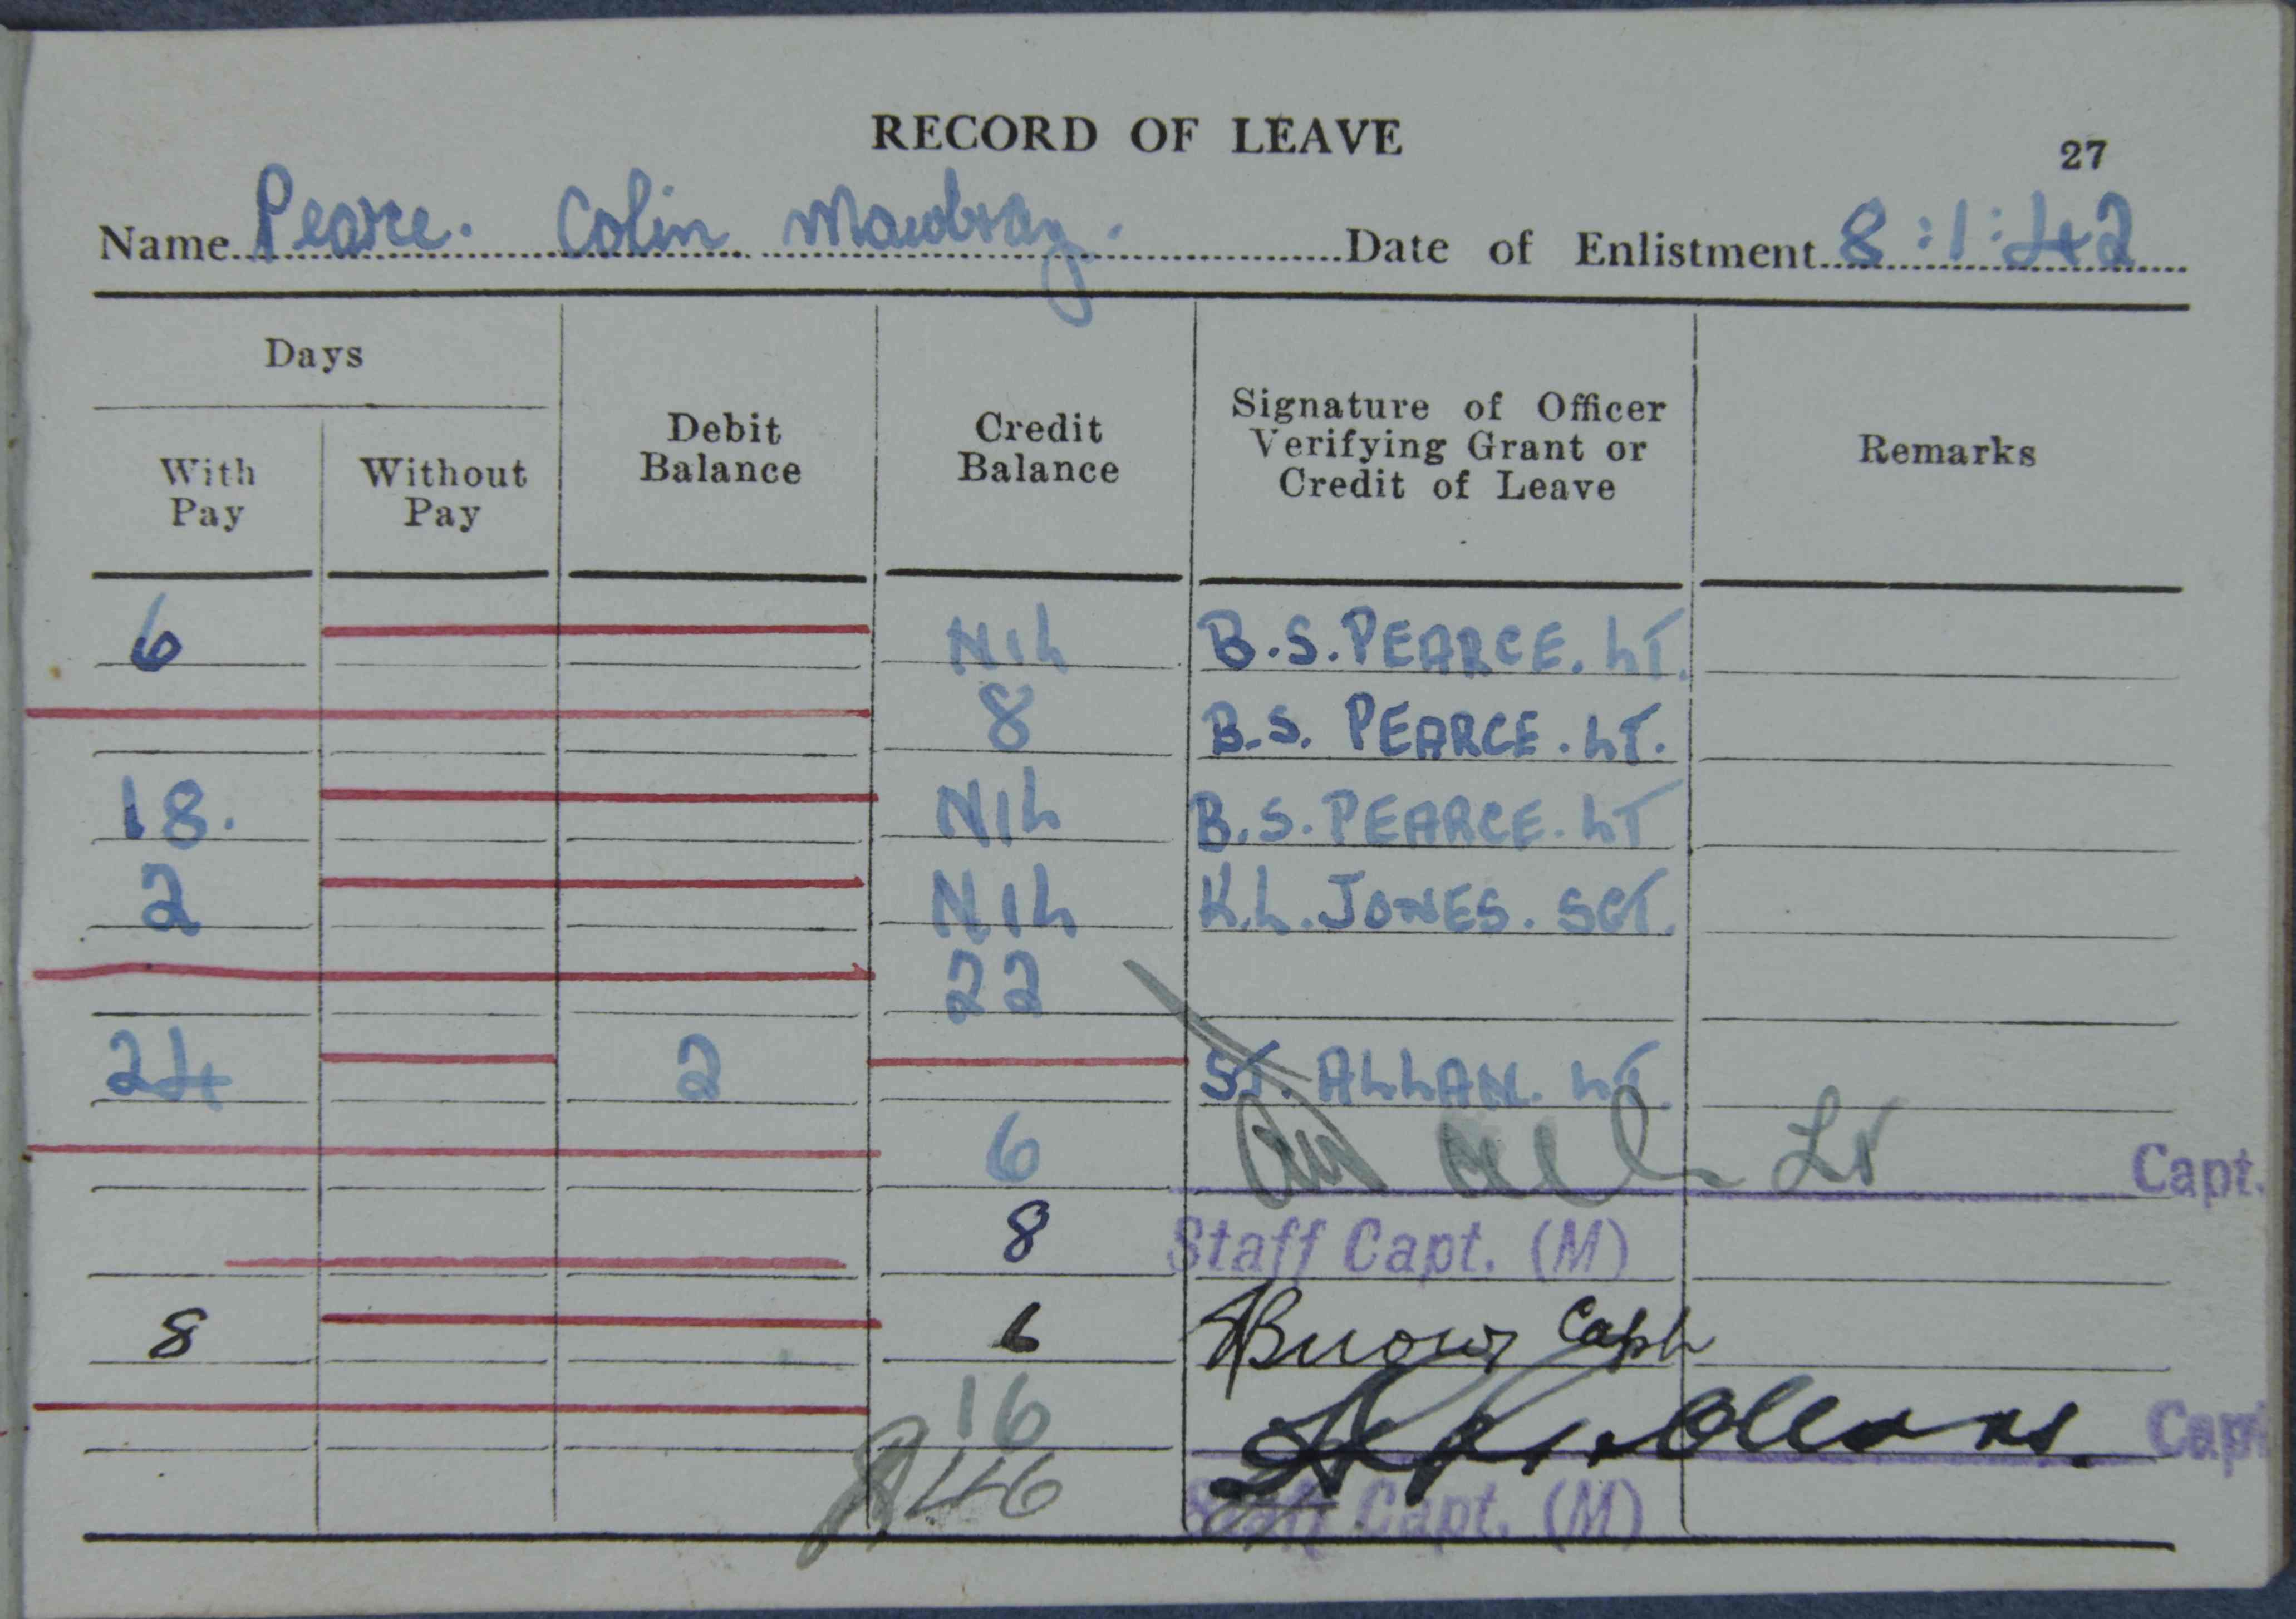 RECORD OF LEAVE
27
Name Pearce. Colin Mawbray. Date of Enlistment 8:1:42
Days
With Pay
Without Pay
Debit Balance
Credit Balance
Signature of Officer Verifying Grant or Credit of Leave
Remarks
6 NIL B.S. PEARCE. LT.
8 B.S. PEARCE. LT.
18. NIL B.S. PEARCE. LT
2 NIL K.L. JONES. SGT.
22
24 2 ALLAN. LT.
6 Lt Capt.
8 Staff Capt. (M)
8 6 Capt
16 Capt
Staff Capt. (M)